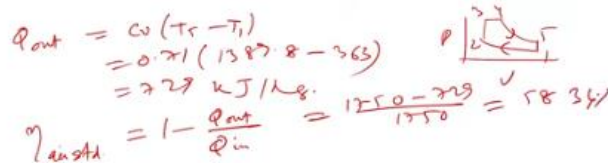 Qout = Cv (T5 - T1)
= 0.71 (1387.8 - 363)
= 729 kJ/kg.
ηairstd = 1 - Qout/Qin = 1750 - 729/1750 = 58.34%
P 3 4 5 2 1 V